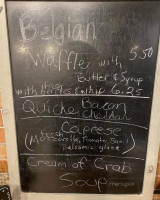 Belgian
Waffle with 5.50
Butter & Syrup
with Apples & whip 6.25
Quiche Bacon
Cheddar
Caprese
(Fresh Mozzarella, Tomato, Basil
balsamic glaze
Cream of Crab
Soup